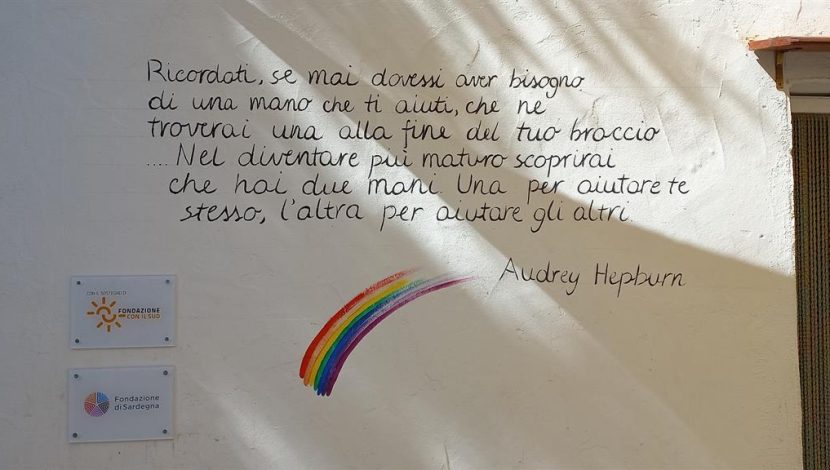 Ricordati, se mai dovessi aver bisogno
di una mano che ti aiuti, che ne
troverai una alla fine del tuo braccio
.... Nel diventare pui maturo scoprirai
che hai due mani. Una per aiutare te
stesso, l'altra per aiutare gli altri.
Audrey Hepburn
CON IL SOSTEGNO DI
FONDAZIONE
CON IL SUD
Fondazione
di Sardegna